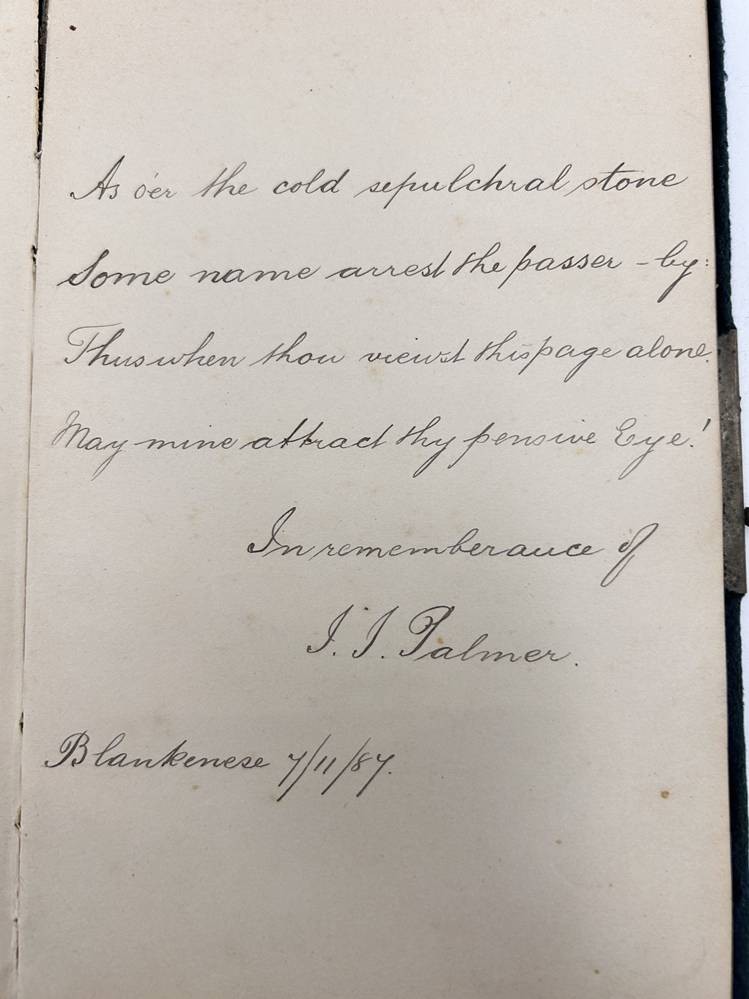 As o'er the cold sepulchral stone
Some name arrest the passer-by:
Thus when thou viewst this page alone.
May mine attract thy pensive Eye!
In rememberance of
J. J. Palmer.
Blankenese 7/11/87.